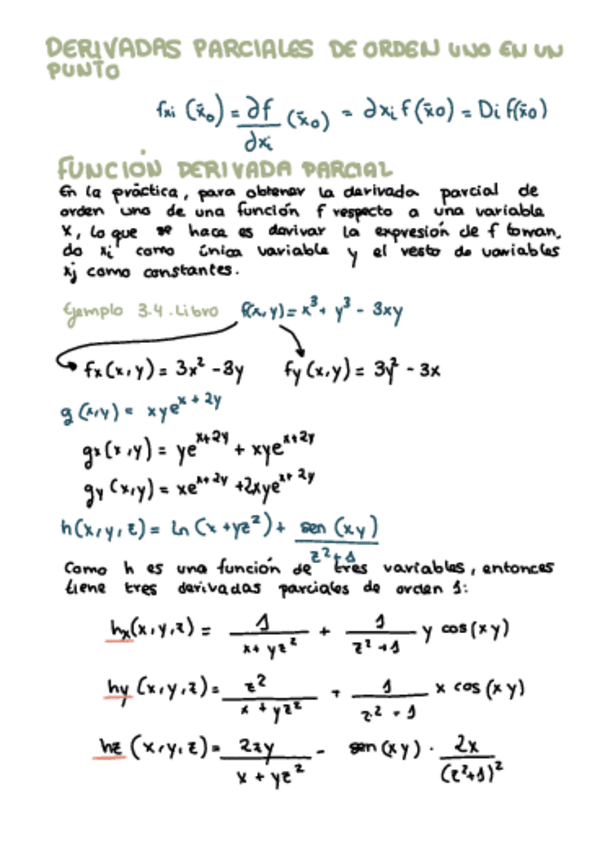 DERIVADAS PARCIALES DE ORDEN UNO EN UN
PUNTO
fxi (x̄₀) = ∂f/∂xi (x̄₀) = ∂xi f(x̄₀) = Di f(x̄₀)
FUNCIÓN DERIVADA PARCIAL
En la práctica, para obtener la derivada parcial de
orden uno de una función f respecto a una variable
x, lo que se hace es derivar la expresión de f toman.
do xi como única variable y el resto de variables
xj como constantes.
Ejemplo 3.4. Libro f(x,y) = x³ + y³ - 3xy
fx(x,y) = 3x² - 3y fy(x,y) = 3y² - 3x
g(x,y) = xye^(x+2y)
gx(x,y) = ye^(x+2y) + xye^(x+2y)
gy(x,y) = xe^(x+2y) + 2xye^(x+2y)
h(x,y,z) = Ln(x+yz²) + sen(xy)/(z²+1)
Como h es una función de tres variables, entonces
tiene tres derivadas parciales de orden 1:
hx(x,y,z) = 1/(x+yz²) + 1/(z²+1) y cos(xy)
hy(x,y,z) = z²/(x+yz²) + 1/(z²+1) x cos(xy)
hz(x,y,z) = 2zy/(x+yz²) - sen(xy) · 2x/(z²+1)²